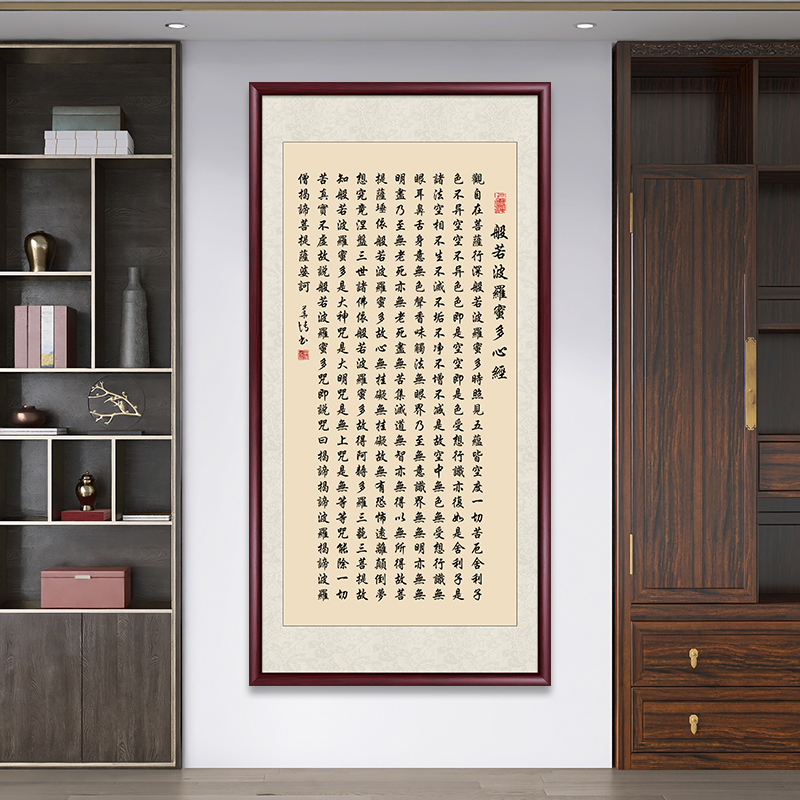 般若波羅蜜多心經
觀自在菩薩行深般若波羅蜜多時照見五蘊皆空度一切苦厄舍利子
色不异空空不异色色即是空空即是色受想行識亦復如是舍利子是
諸法空相不生不滅不垢不净不增不减是故空中無色無受想行識無
眼耳鼻舌身意無色聲香味觸法無眼界乃至無意識界無無明亦無無
明盡乃至無老死亦無老死盡無苦集滅道無智亦無得以無所得故菩
提薩埵依般若波羅蜜多故心無挂礙無挂礙故無有恐怖遠離顛倒夢
想究竟涅盤三世諸佛依般若波羅蜜多故得阿耨多羅三藐三菩提故
知般若波羅蜜多是大神咒是大明咒是無上咒是無等等咒能除一切
苦真實不虛故説般若波羅蜜多咒即説咒曰揭諦揭諦波羅揭諦波羅
僧揭諦菩提薩婆訶